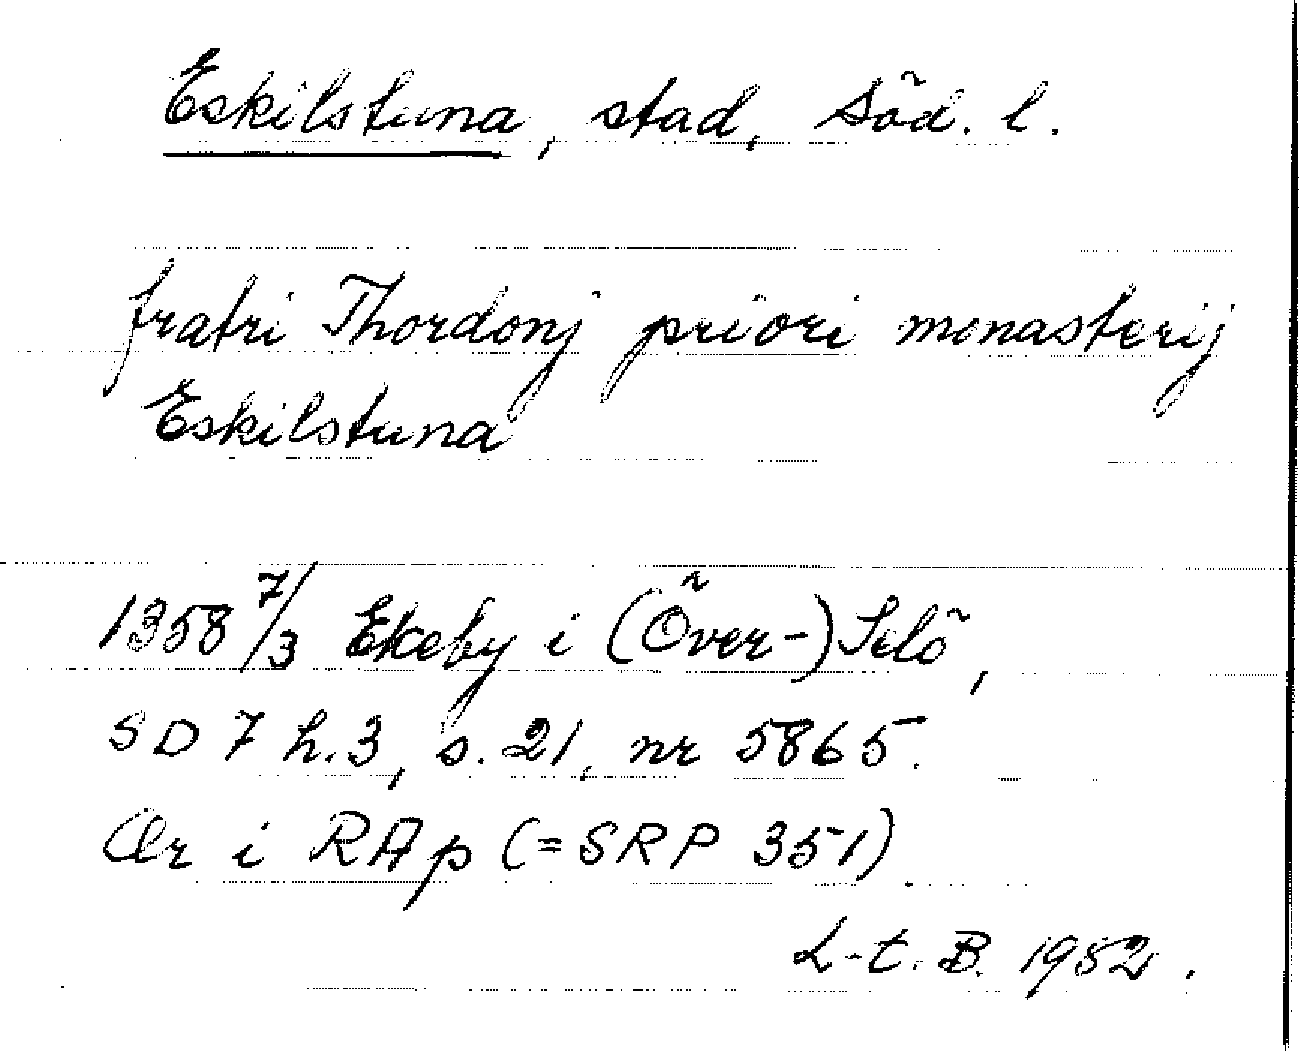 Eskilstuna, stad, Söd. l.
fratri Thordonj priori monasterij
Eskilstuna
1358 7/3 Ekeby i (Över-) Selö,
SD 7 h.3, s. 21, nr 5865.
Or i RAp (= SRP 351)
L-t. B. 1952.